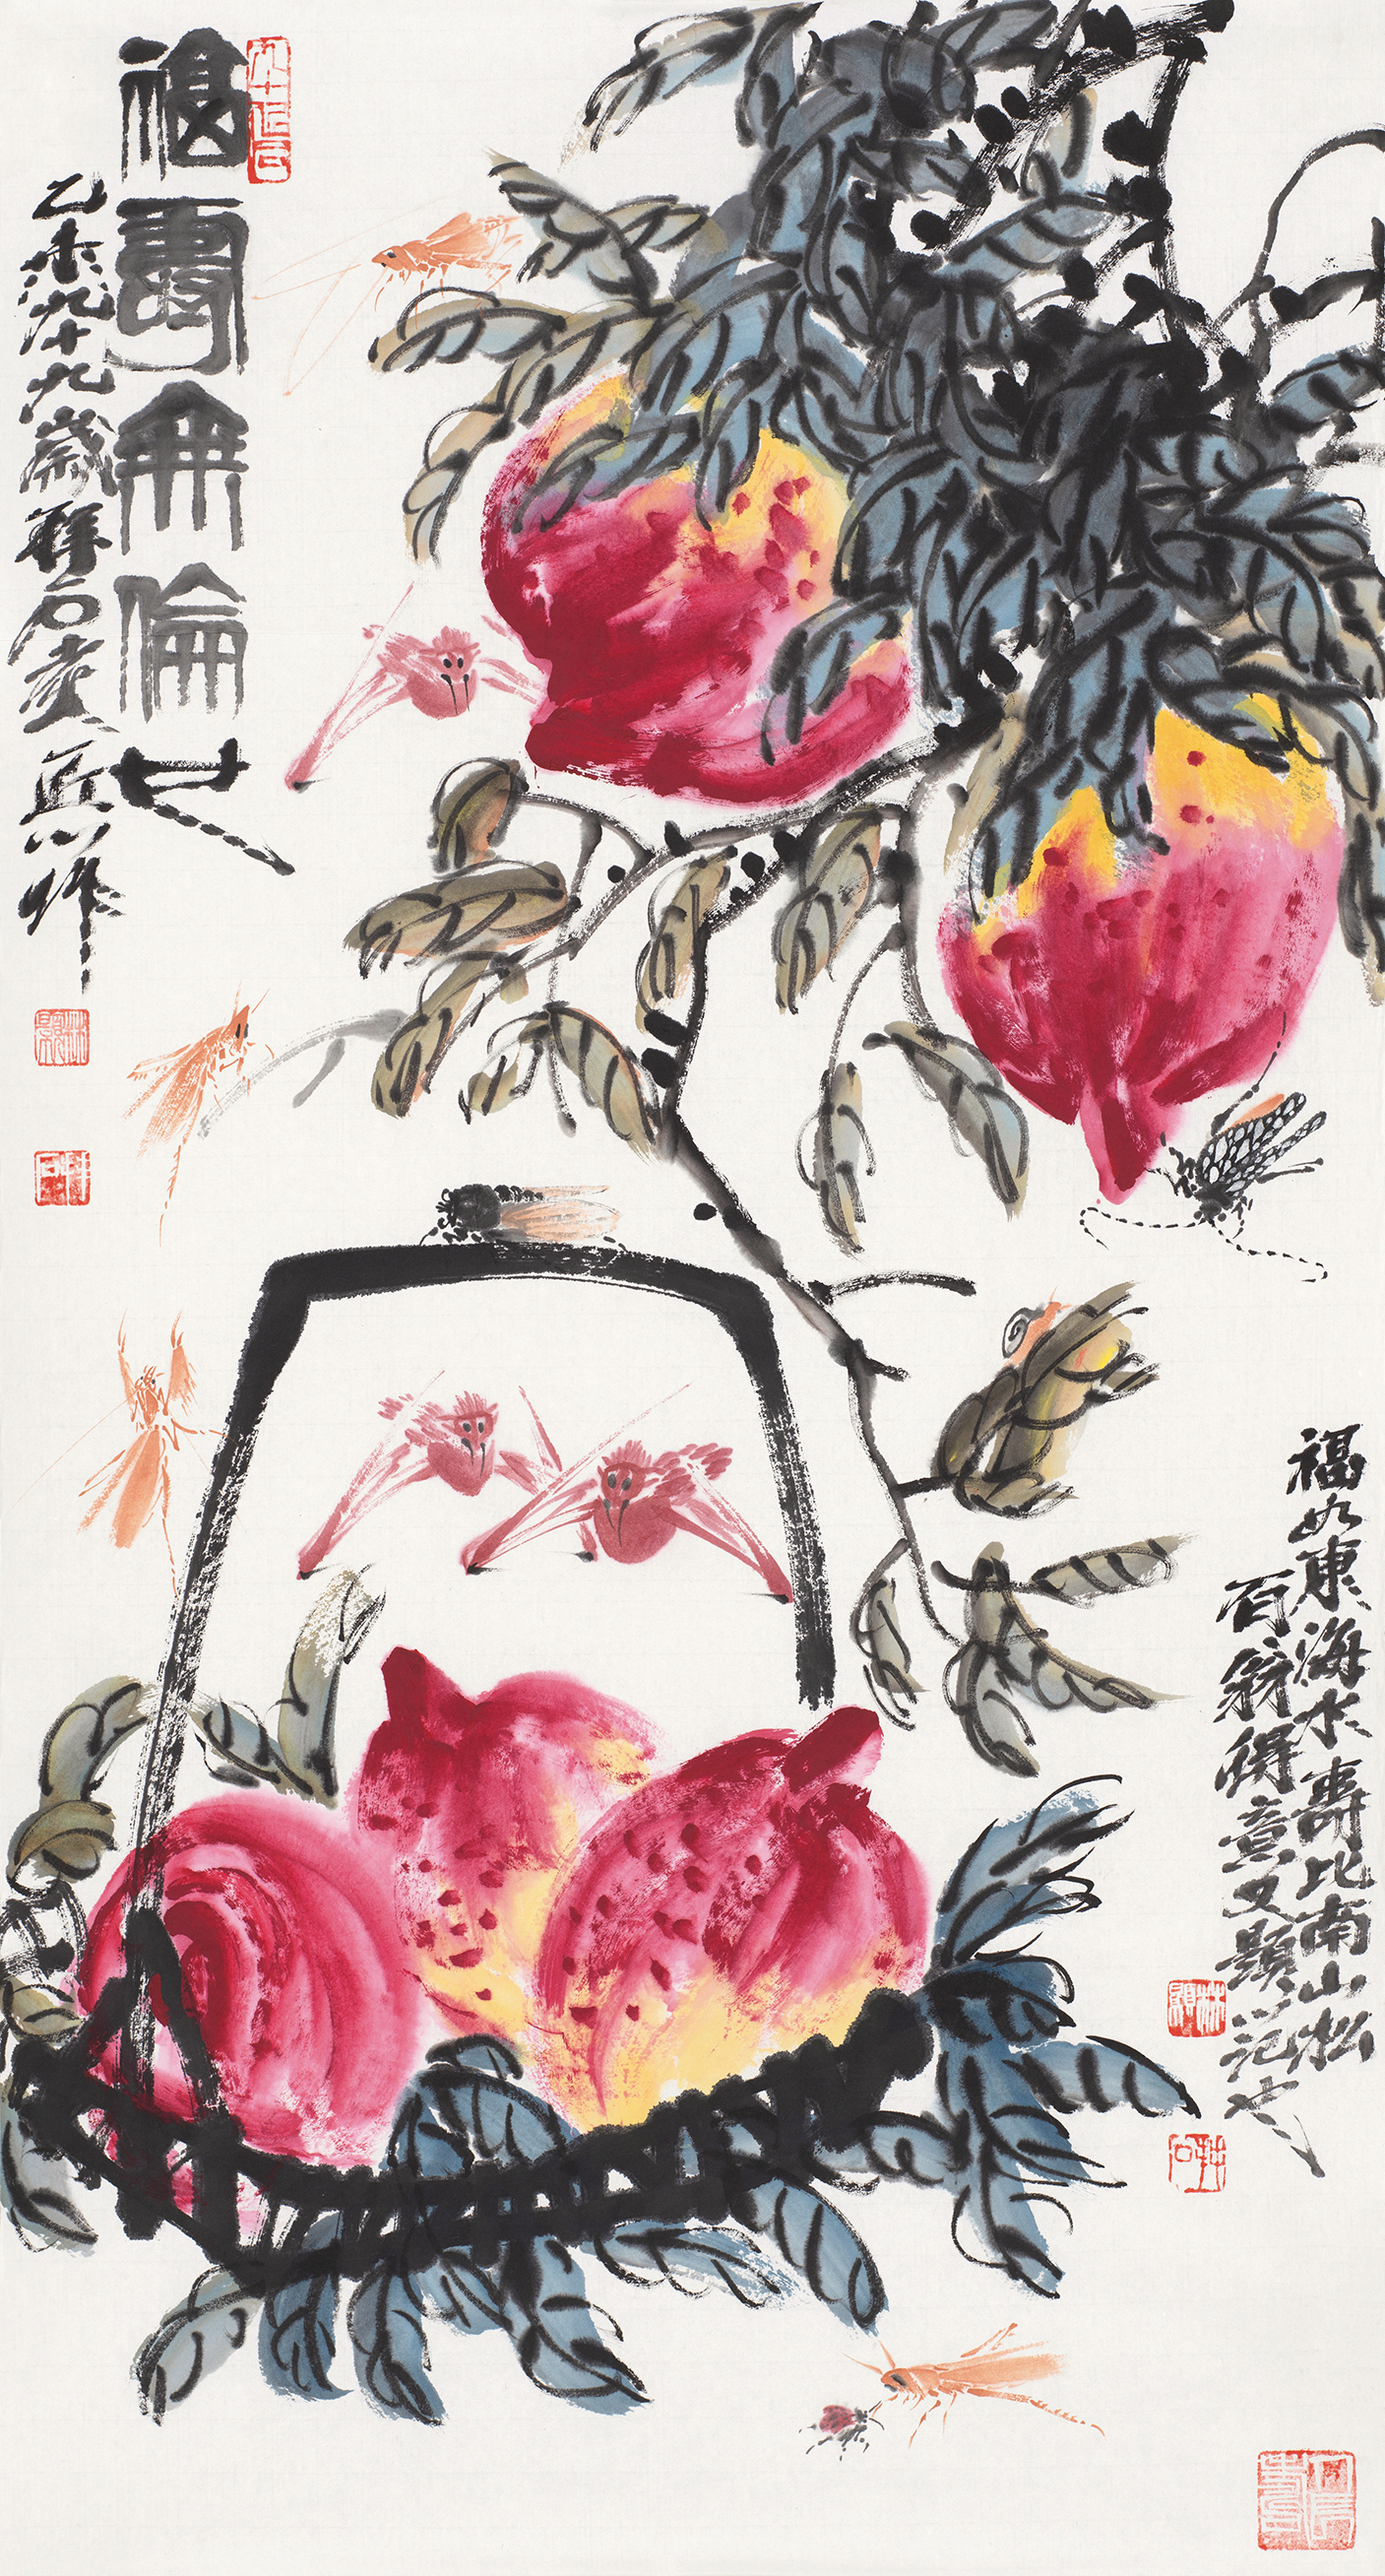 福壽無倫
乙未九十九歲拜石老人匠心作
福如東海水壽比南山松
百翁得意又題記也